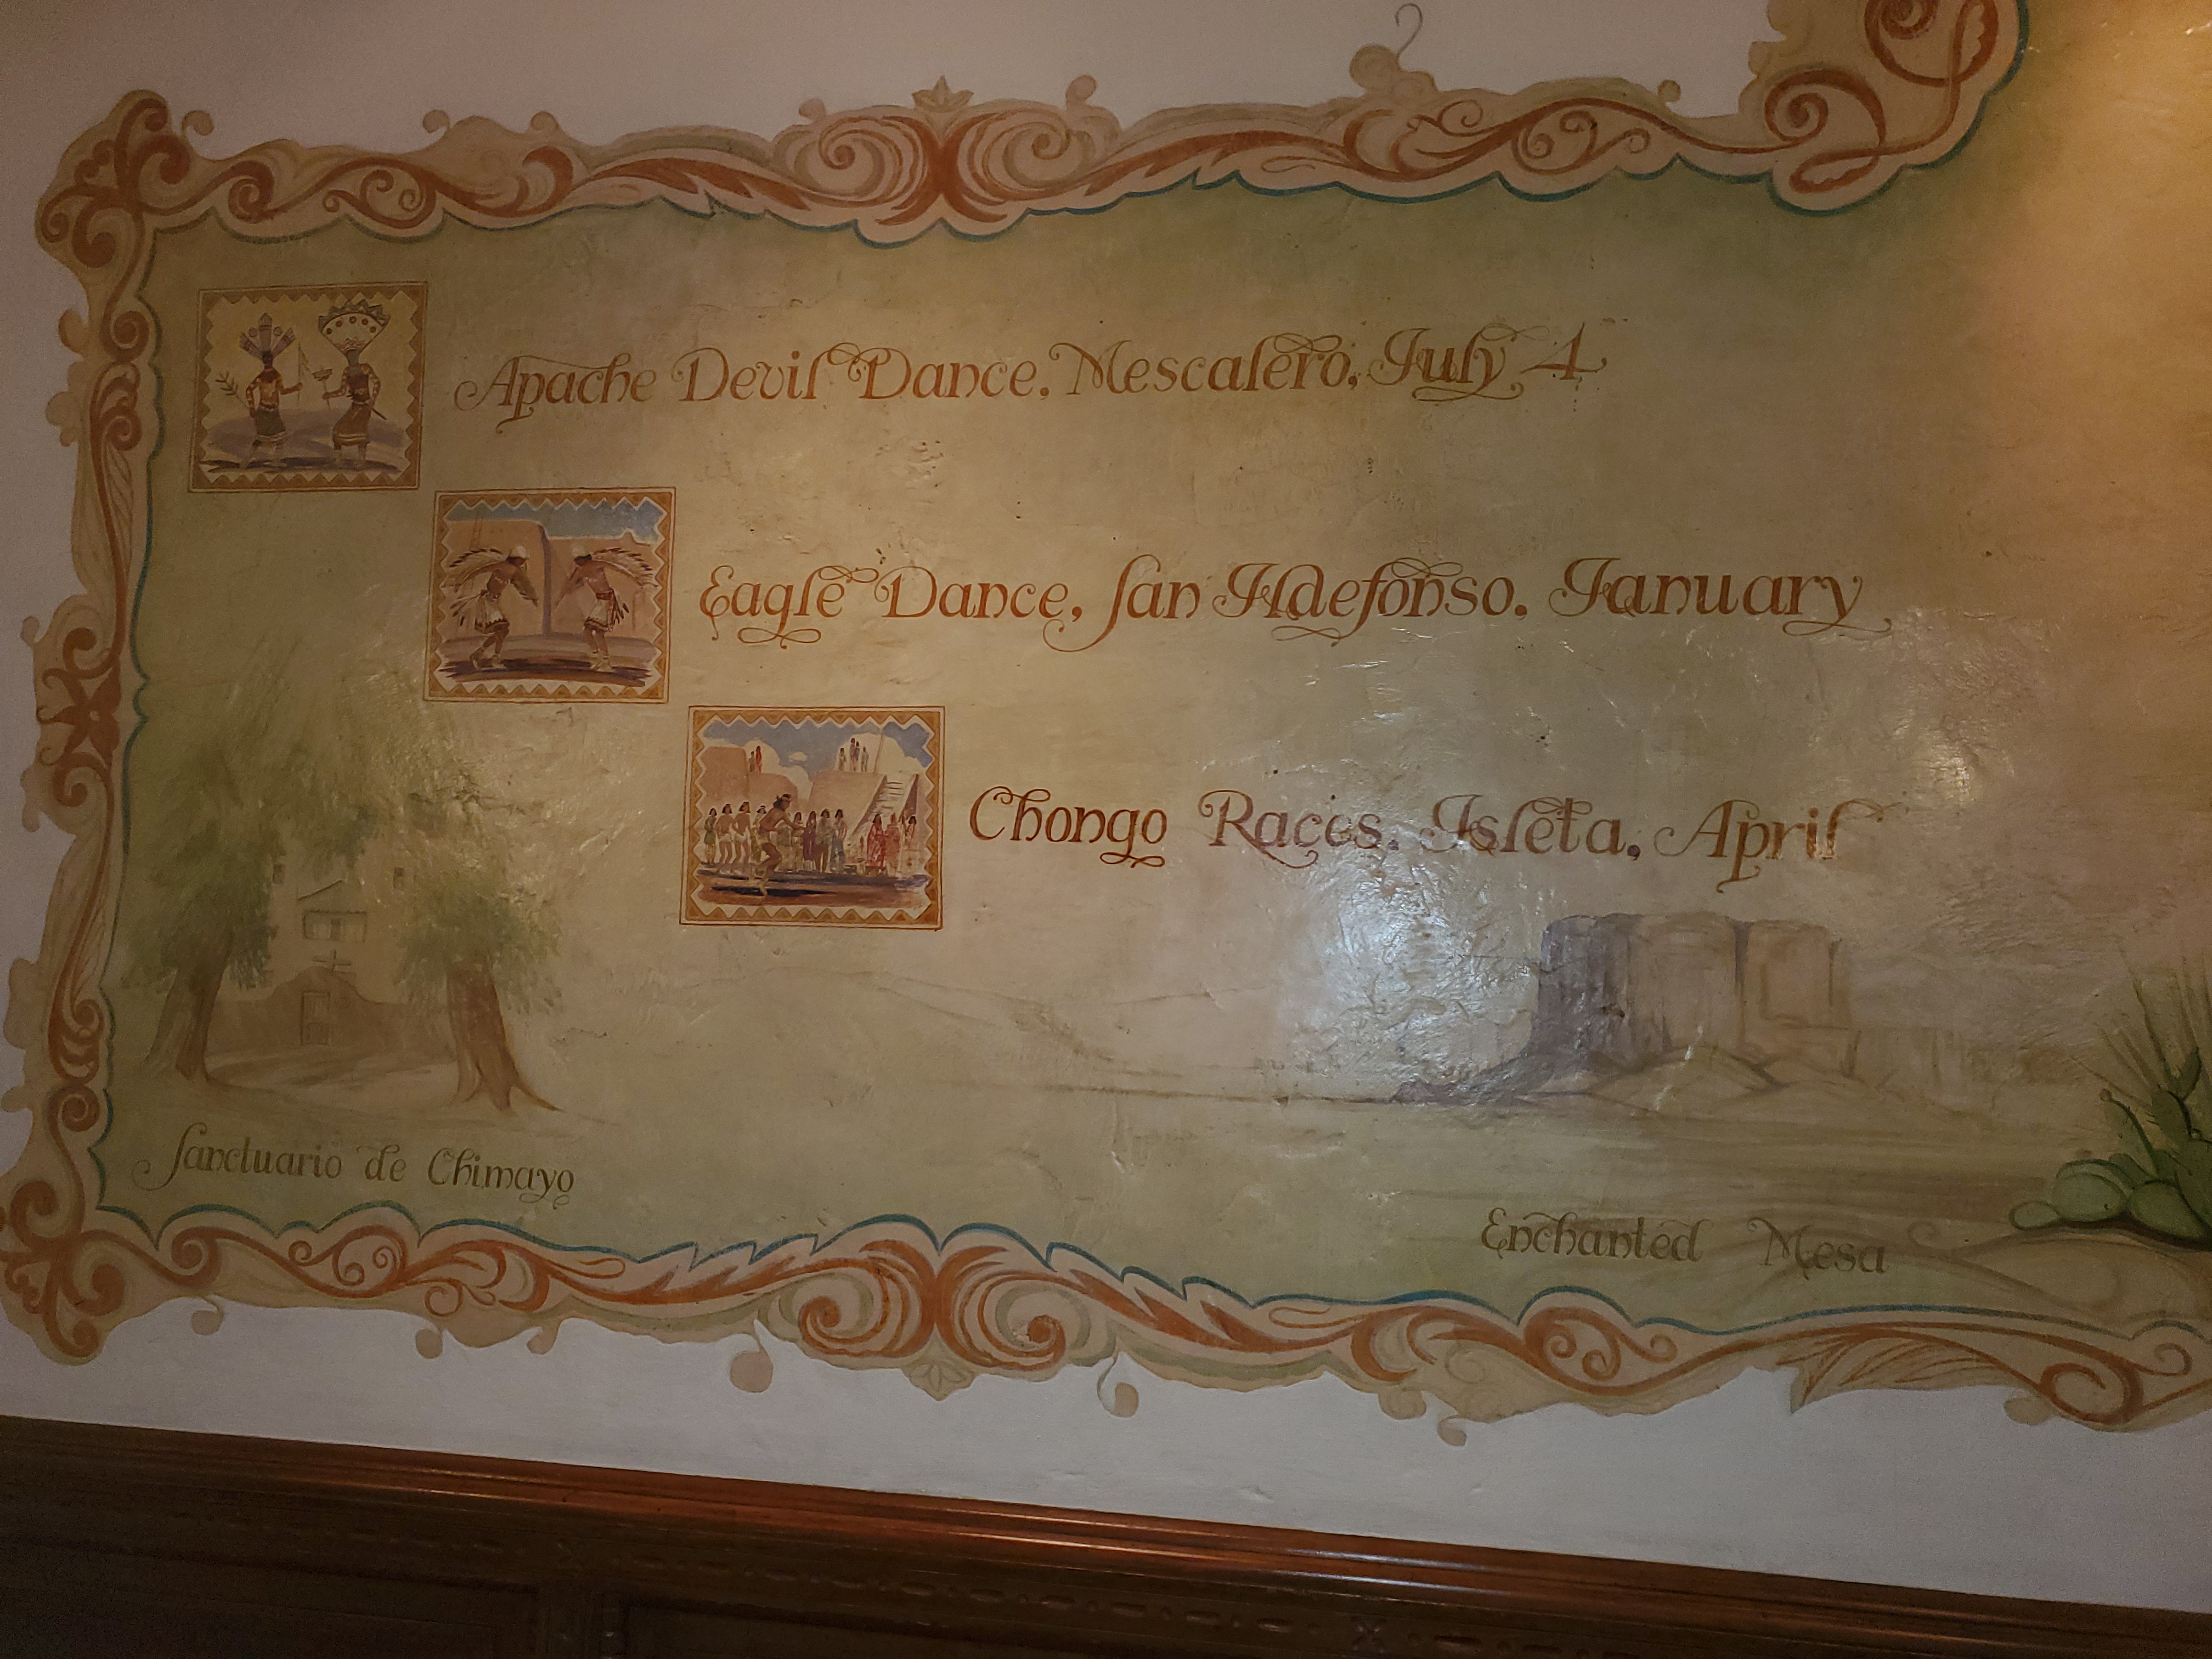 Apache Devil Dance. Mescalero, July 4
Eagle Dance, San Ildefonso. January
Chongo Races. Isleta, April
Sanctuario de Chimayo
Enchanted Mesa